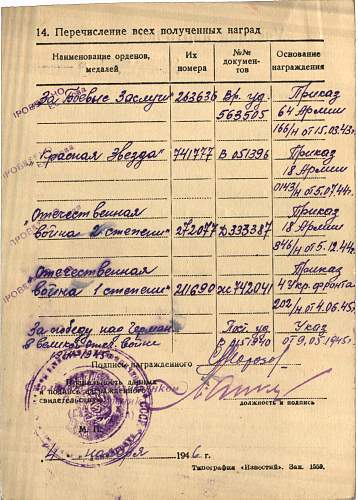 14. Перечисление всех полученных наград
Наименование орденов, медалей
Их номера
№№ документов
Основание награждения
„За Боевые Заслуги“ 263636 Вр. уд. 563505 Приказ 64 Армии 166/н от 15.03.43г.
„Красная Звезда“ 741777 В 051396 Приказ 18 Армии 0143/н от 5.07.44г.
„Отечественная война 2 степени“ 272077 Д 333387 Приказ 18 Армии 346/н от 5.12.44г.
„Отечественная война 1 степени“ 201690 Ж 742041 Приказ 4 Укр. фронта 202/н от 4.06.45г.
За победу над Герман. в великой отеч. войне 1941/1945гг. Пост. уд. Указ от 9.05.1945г.
Подпись награжденного
Правильность данных и подпись награжденного свидетельствую:
должность и подпись
М. П.
4 января 1946 г.
Типография «Известий». Зак. 1559.